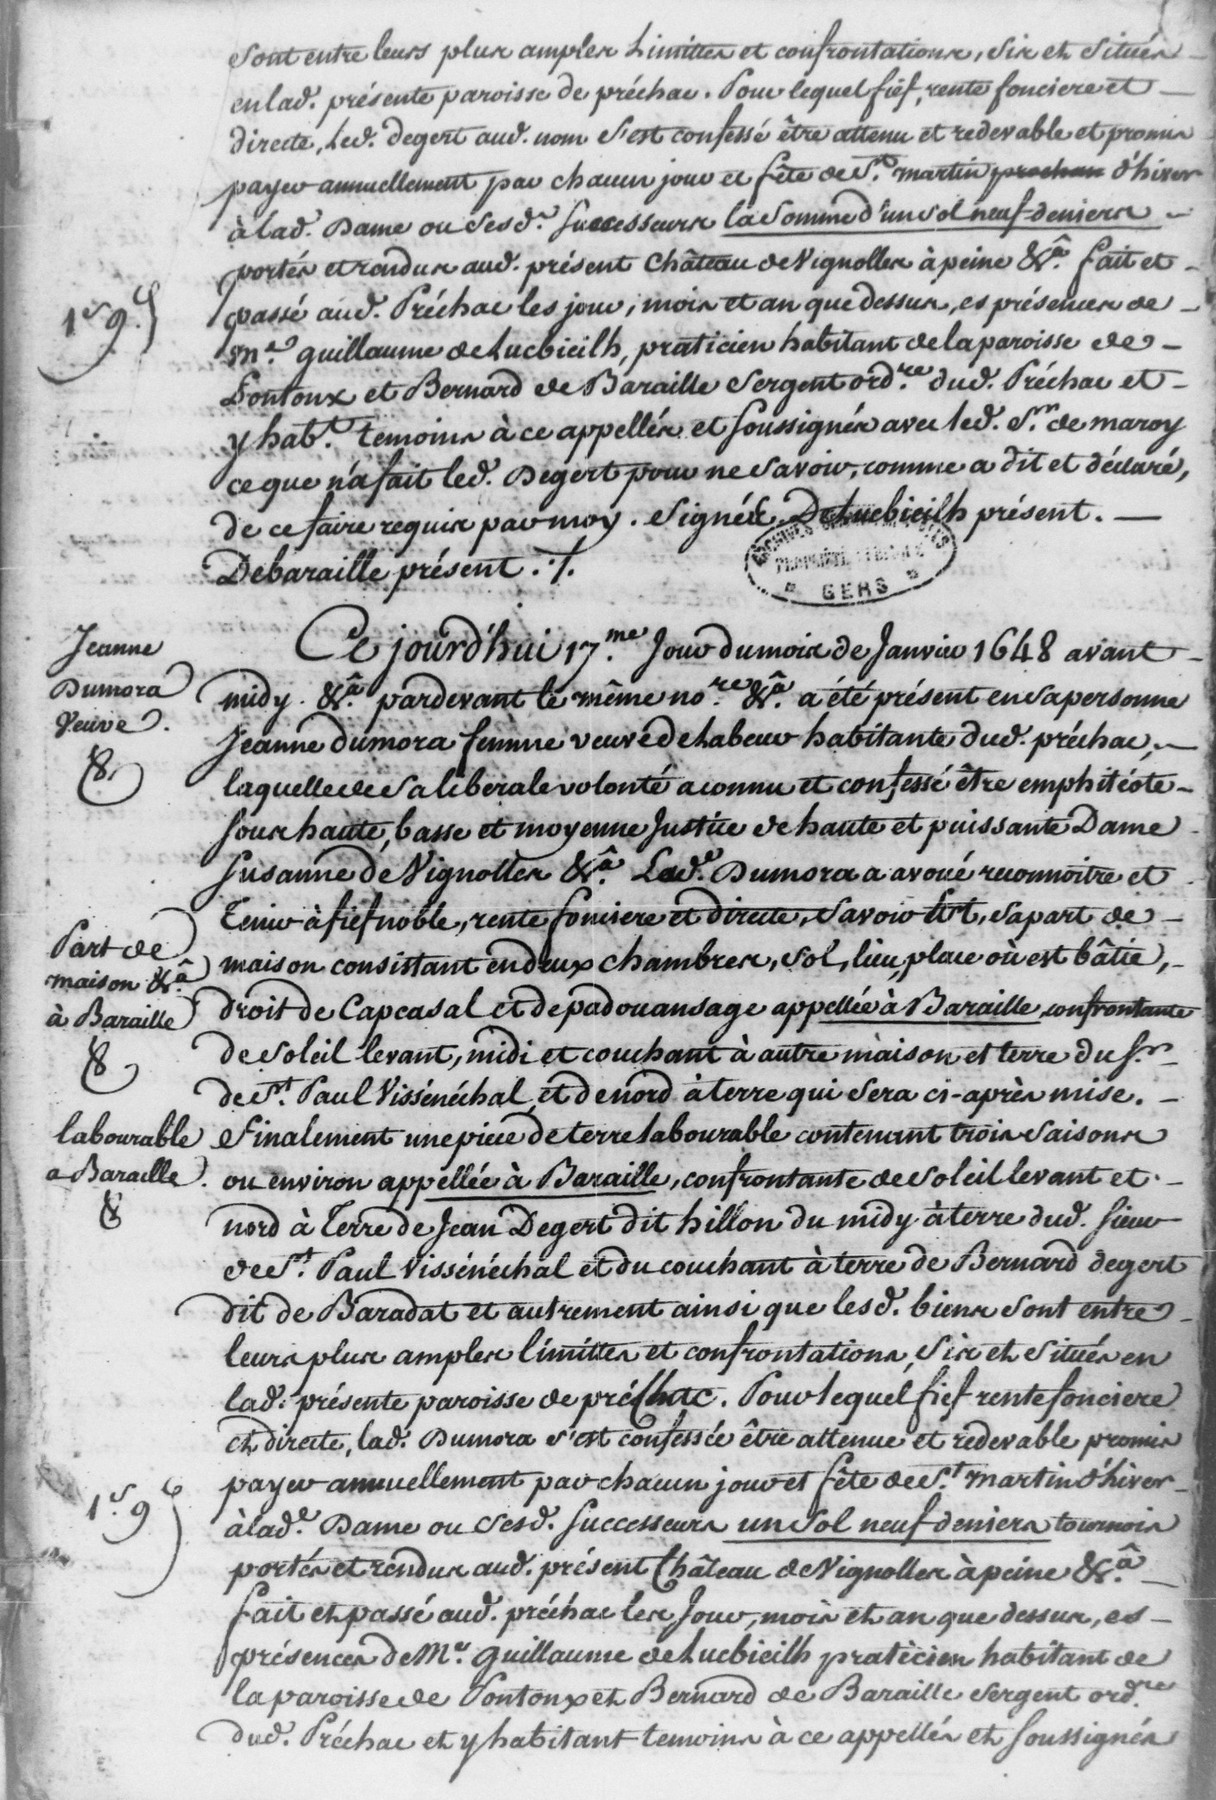 sont entre leurs plus amples Limittes et confrontations, sis et situés
en lad. présente paroisse de préchac. Pour lequel fief, rente fonciere et
directe, Led. degert aud. nom s'est confessé être attenu et redevable et promis
payer annuellement par chacun jour et fête de St. martin prochan d'hiver
à lad. Dame ou sesd. successeurs la somme d'un sol neuf deniers
portés et rendus aud. présent Château de Vignolles à peine &a. fait et
1 s 9 d
passé aud. Préchac les jour, mois et an que dessus, es présences de
Me. guillaume de Lucbieilh, praticien habitant de la paroisse de
Pontonx et Bernard de Baraille sergent ordre. dud. Préchac et
y habt. temoins à ce appellés et soussignés avec led. Sr. de maroy
ce que n'a fait led. Degert pour ne savoir, comme a dit et déclaré,
de ce faire requis par moy. signés. De Lucbieilh présent.
Debaraille présent ./.
GERS
Jeanne
Dumora
Veuve.
8
Ce jourd'hui 17.me Jour du mois de Janvier 1648 avant
midy. &a. pardevant le même nore. &a. a été présent en sa personne
Jeanne dumora femme veuve de Labeur habitante dud. préchac,
laquelle de sa liberale volonté a connu et confessé être emphitéote
sous haute, basse et moyenne Justice de haute et puissante Dame
Susanne de Vignolles &a. Lade. Dumora a avoué reconnoitre et
Tenir à fief noble, rente fonciere et directe, savoir est, sa part de
Part de
maison &a
à Baraille
8
maison consistant en deux chambres, sol, lieu, place où est bâtie,
droit de Capcasal et de padouansage appellée à Baraille, confrontante
de soleil levant, midi et couchant à autre maison et terre du Sr.
de St. Paul Vissénéchal, et de nord à terre qui sera ci-après mise.
labourable
a Baraille.
8
finalement une piece de terre labourable contenant trois saisons
ou environ appellée à Baraille, confrontante de soleil levant et
nord à Terre de Jean Degert dit hillon du midy à terre dud. sieur
de St. Paul Vissénéchal et du couchant à terre de Bernard degert
dit de Baradat et autrement ainsi que lesd. biens sont entre
leurs plus amples limittes et confrontations, sis et situés en
lad. présente paroisse de préchac. Pour lequel fief rente fonciere
et directe, lad. Dumora s'est confessée être attenue et redevable promis
payer annuellement par chacun jour et fête de St. martin d'hiver
1 s. 9 d
à lade. Dame ou sesd. successeurs un sol neuf deniers tournois
portés et rendus aud. présent Château de Vignolles à peine &a.
fait et passé aud. préchac les Jour, mois et an que dessus, es
présences de Me. guillaume de Lucbieilh praticien habitant de
la paroisse de Pontonx et Bernard de Baraille sergent ordre.
dud. Préchac et y habitant temoins à ce appellés et soussignés